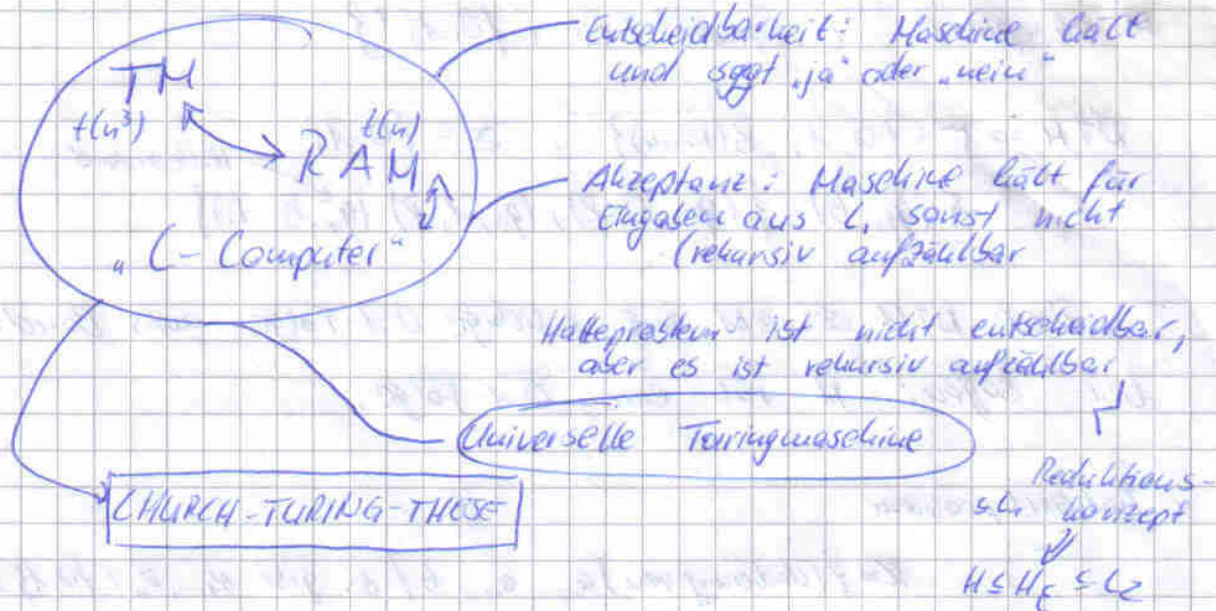 Entscheidbarkeit: Maschine hält
und sagt „ja“ oder „nein“
TM
t(n³)
t(n)
RAM
„C-Computer“
Akzeptanz: Maschine hält für
Eingaben aus L, sonst nicht
(rekursiv aufzählbar
Halteproblem ist nicht entscheidbar,
aber es ist rekursiv aufzählbar
Universelle Turingmaschine
CHURCH-TURING-THESE
Reduktions-
konzept
H ≤ Hε ≤ L2